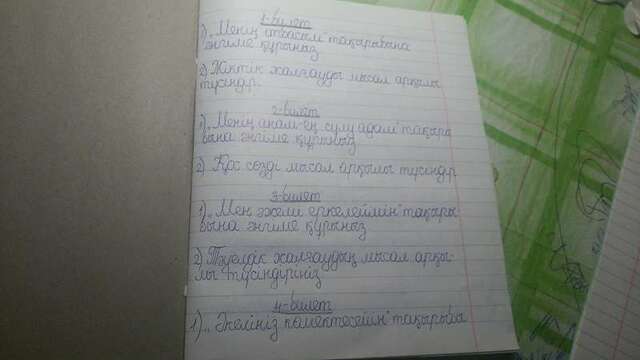 1-билет
1) „Менің отбасым" тақырыбына
әңгіме құрыңыз
2) Жіктік жалғауды мысал арқылы
түсіндір.
2-билет
1) „Менің анам-ең сұлу адам" тақыры
бына әңгіме құрыңыз
2) Қос сөзді мысал арқылы түсіндір
3-билет
1) „Мен әжеме еркелеймін" тақыры
бына әңгіме құрыңыз
2) Тәуелдік жалғаудың мысал арқы-
лы түсіндіріңіз
4-билет
1) „ көмектесейін" тақырыбы